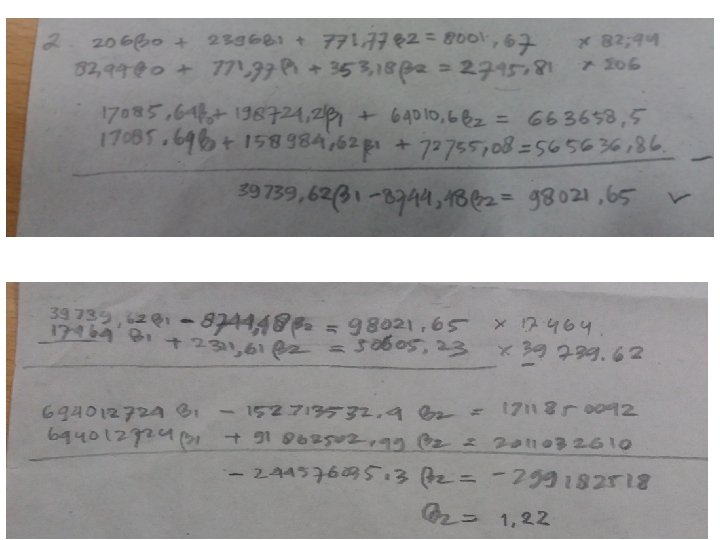 2. 206β0 + 2396β1 + 771,77β2 = 8001,67 × 82,94
82,94β0 + 771,77β1 + 353,18β2 = 2745,81 × 206
17085,64β0 + 198724,2β1 + 64010,6β2 = 663658,5
17085,64β0 + 158984,62β1 + 72755,08 = 565636,86.
39739,62β1 - 8744,48β2 = 98021,65 ✓
39739,62β1 - 8744,48β2 = 98021,65 × 17464.
17464 β1 + 2311,61 β2 = 50605,23 × 39739.62
694012724 β1 - 152713532,4 β2 = 1711850092
694012724 β1 + 91862502,99 β2 = 2011032610
- 244576035,3 β2 = - 299182518
β2 = 1,22